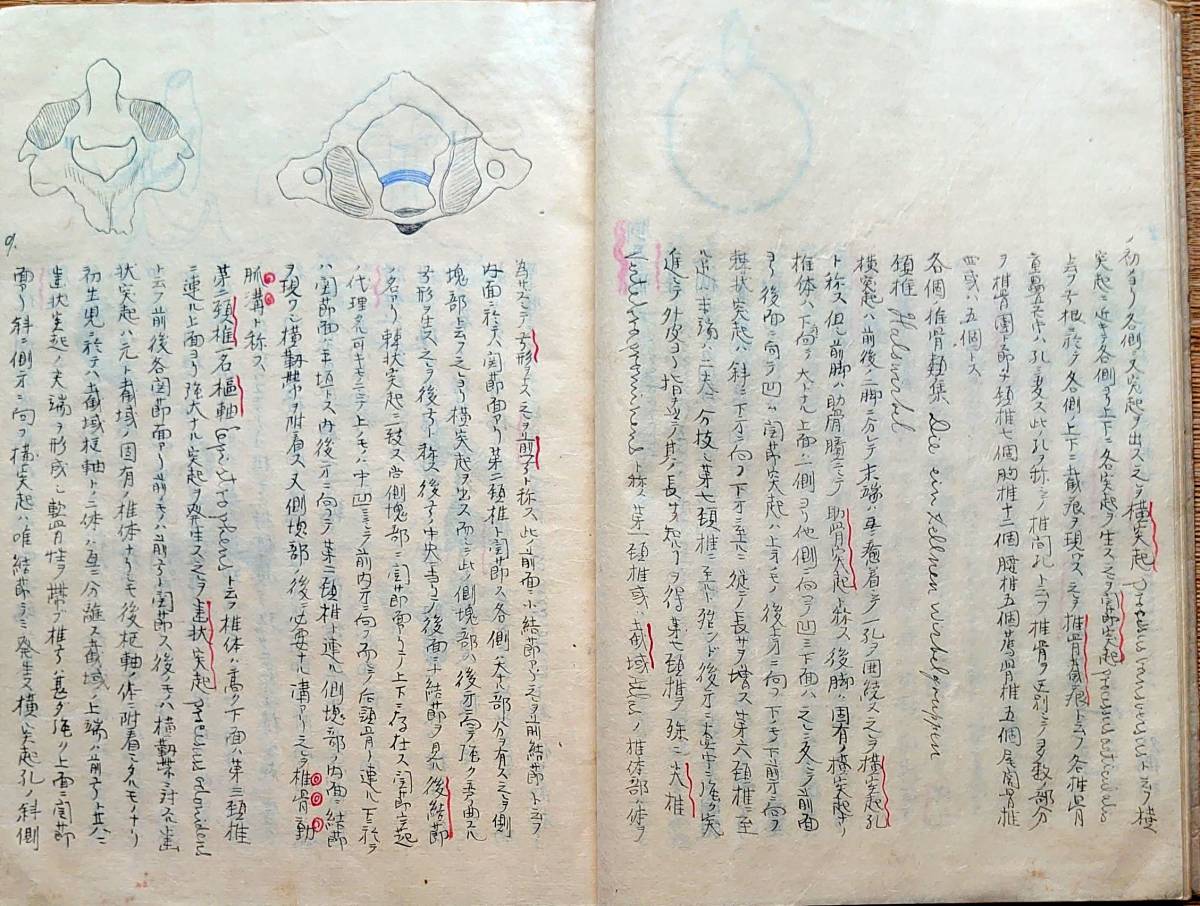 初ヨリ各側ノ突起ヲ出ス之ヲ横突起 Processus transversi トユフ横
突起ニ近キテ各側ヨリ上下ニ各突起ヲ生ス之ヲ関節突起 processus articularis
上云フ弓根ニ於テ各側ノ上下ニ截痕ヲ現ハス之ヲ椎骨截痕ト云フ各椎骨
ハ孔ニ変ス此孔ヲ称シテ椎間孔ト云フ椎骨ヲ区別シテ多数部分
ヲ椎骨團ト即チ頸椎七個胸椎十二個腰椎五個薦骨椎五個尾閭骨椎
四或ハ五個トス
各個椎骨類集 Die einzellnen wirbelgruppen
頸椎 Halswirbel
横突起ハ前後二脚ニ分レテ末端ハ再ヒ癒着シテ一孔ヲ囲繞ス之ヲ横突起孔
ト称ス但シ前脚ハ助骨ニテ助骨突起ト称ス後脚ハ固有ノ横突起ナリ
椎体ハ下方大トナル上面ハ一側ヨリ他側ニ向テ凹ミ下面ハ之ニ反シテ前面
ヨリ後面ニ向テ凹ム関節突起ハ上方モノ後上方ニ向フ下モノ下前方ニ向フ
棘状突起ハ斜ニ下方ニ向フ下方ニ至ルニ従テ長サヲ増ス第六頸椎ニ至
末端ハ二尖ニ分枝シ第七頸椎ニ至レハ殆ンド後方ニ水平ニ強ク突
進シテ外皮ヨリ指ニテ其ノ長サヲ知ルヲ得第七頸椎ヲ殊ニ尖椎
Vertebra prominens ト称ス第一頸椎或ハ截域 atlas ノ椎体部ハ体ヲ
為サスシテ弓形ヲナス之ヲ前弓ト称ス此ノ前面ニ小結節アリ之ヲ前結節トユフ
内面ニ於テハ関節面アリ第二頸椎ト関節ス各側ノ大ナル部分ヲ有ス之ヲ側
塊部ト云フ之ヨリ横突起ヲ出ス而シテ此ノ側塊部ハ後方ニ向テ強ク弯曲スル
弓形ヲ生ス之ヲ後弓ト称ス後弓ノ中央ニ其ノ後面ニ一結節ヲ見ル後結節
ノ名アリ棘状突起ニ一致ス尚側塊部ニ関節面アリテ上下ニ存在ス関節突起
ノ代理ヲナス可キモノニテ上ノモノハ中凹ミシテ前内方ニ向フ而シテ后頭骨ニ連ル下ニ於テ
ハ関節面ハ平坦トス内後方ニ向テ第二頸椎ト連ル側塊部ノ内面ニ結節
ヲ現ハシ横靱帯ヲ附着ス又側塊部ノ後ニ必要ナル溝アリ之ヲ椎骨動
脈溝ト称ス
第二頸椎一名樞軸 Epistropheus ト云フ椎体ハ高ク下面ハ第三頸椎
ニ連ル上面ヨリ強大ナル突起ヲ発生ス之ヲ歯状突起 processus odontoideus
ト云フ前後各関節面アリ前ノモノハ前弓ト関節ス後ノモノハ横靱帯ニ対ス歯
状突起ハ元ト截域ノ固有ノ椎体ナリシモ後枢軸ノ体ニ附着シタルモノナリ
初生児ニ於テハ截域枢軸トノ二体ハ互ニ分離ス截域ノ上端ハ前弓ト共ニ
歯状突起ノ尖端ヲ形成シ軟骨性ヲ帯フ椎弓ハ甚タ強シ上面ニ関節
面アリ斜ニ側方ニ向フ横突起ハ唯一結節ヲノミ発生ス横突起孔ハ斜側
9.